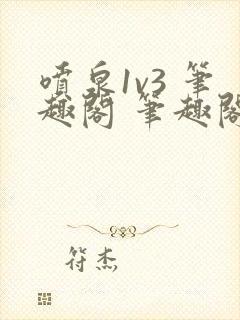 喷泉1v3 筆
趣閣 筆趣閣
符杰